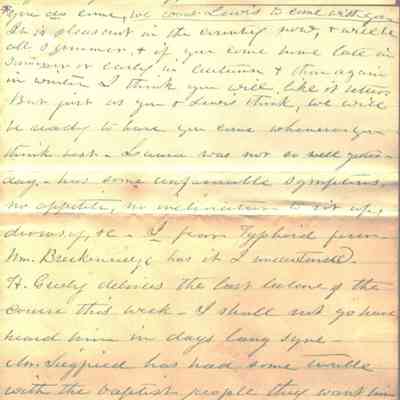 you do come, we want Lewis to come with you
It is pleasant in the country now, & will be
all summer, & if you come home late in
summer or early in Autumn & then again
in winter I think you will like it better
But just as you & Lewis think, we will
be ready to have you come whenever you
think best - was not so well yester-
day - has some unfavorable symptoms,
no appetite, no inclination to sit up,
drowsy, &c - I fear Typhoid fever -
Wm. Breckenridge has it I understand -
H. delivers the last lecture of the
course this week - I shall not go have
heard him in days lang syne -
Mr. has had some trouble
with the baptist people they want him